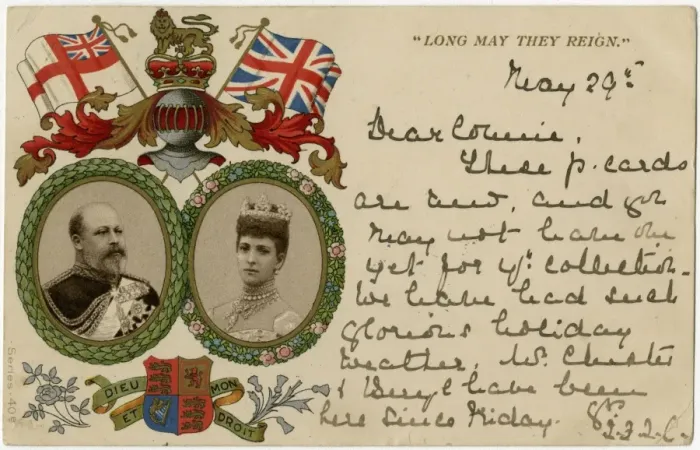 "LONG MAY THEY REIGN."
May 29th
Dear Connie,
These p. cards
are new, and you
may not have one
yet for yr collection.
We have had such
glorious holiday
weather, Mr. Chester
& Beryl have been
here since Friday.
DIEU ET MON DROIT
Series 40